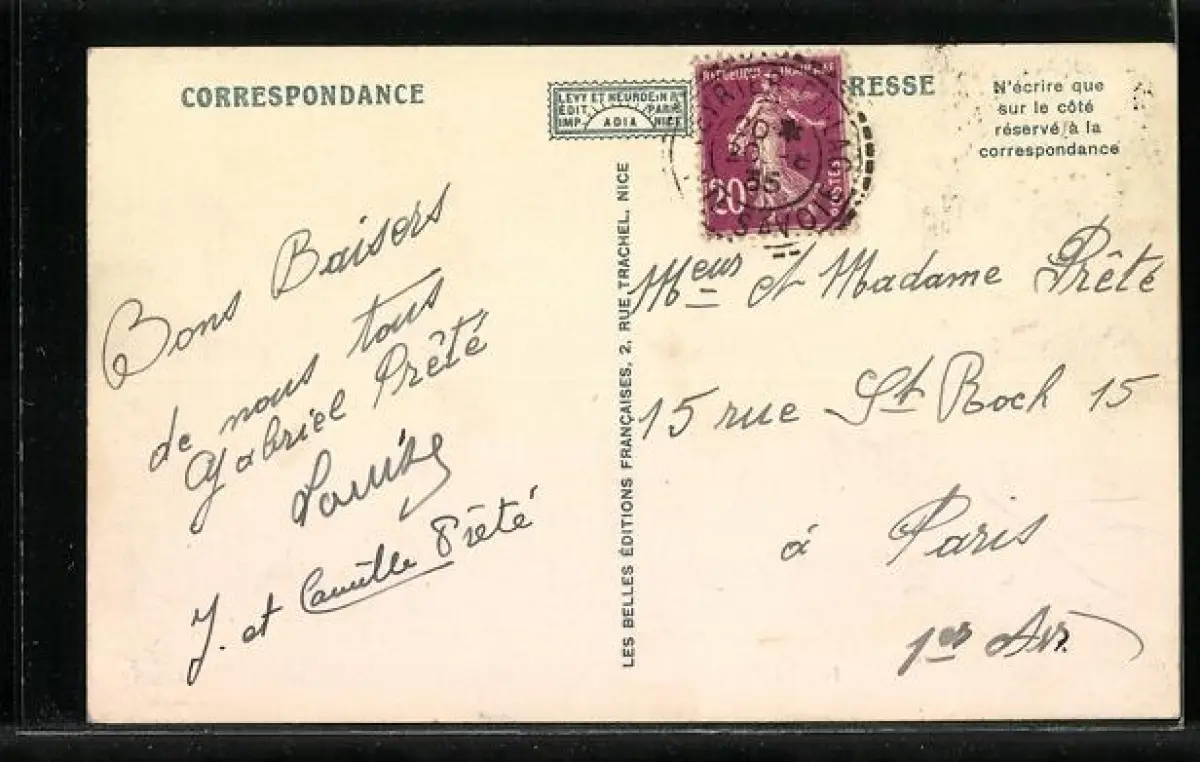 CORRESPONDANCE
LEVY ET NEURDEIN Rs
EDIT. PARIS
IMP. ADIA NICE
RESSE
N'écrire que
sur le côté
réservé à la
correspondance
20
POSTES
20
35
SAVOIE
Bons Baisers
de nous tous
Gabriel Prêté
Louise
J. et Camille Prêté
LES BELLES ÉDITIONS FRANÇAISES, 2, RUE TRACHEL, NICE
Meur et Madame Prêté
15 rue St Roch 15
à Paris
1er Arr.